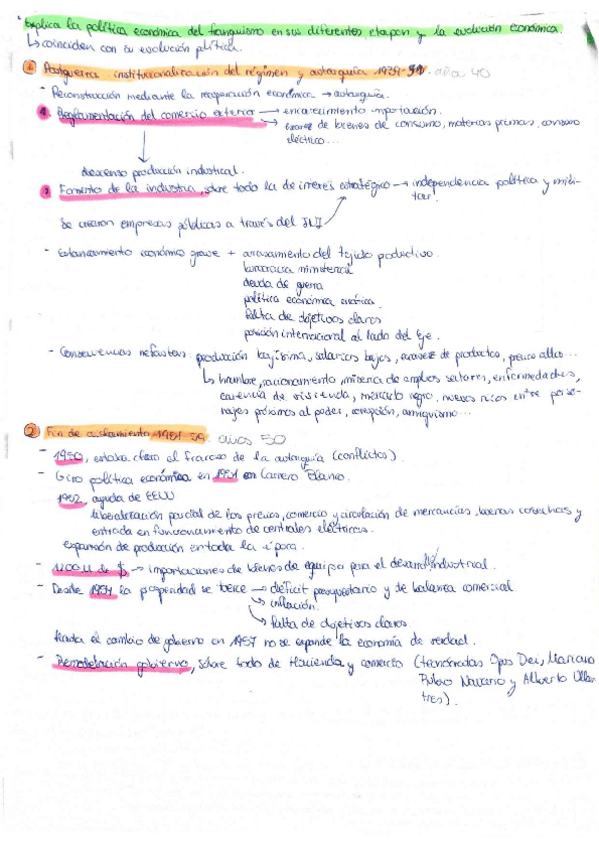 Explica la política económica del franquismo en sus diferentes etapas y la evolución económica.
↳ coinciden con su evolución política.
① Postguerra: institucionalización del régimen y autarquía 1939-51. años 40
- Reconstrucción mediante la recuperación económica → autarquía.
Reglamentación del comercio exterior → encarecimiento importación.
↘ escasez de bienes de consumo, materias primas, consumo eléctrico...
descenso producción industrial.
Fomento de la industria, sobre todo la de interés estratégico → independencia política y militar.
Se crearon empresas públicas a través del INI
- Estancamiento económico grave + arrasamiento del tejido productivo.
burocracia ministerial
deuda de guerra
política económica errática.
falta de objetivos claros
posición internacional al lado del Eje.
- Consecuencias nefastas: producción bajísima, salarios bajos, escasez de productos, precios altos...
↳ hambre, racionamiento, miseria de amplios sectores, enfermedades,
carencia de vivienda, mercado negro, nuevos ricos entre perso-
najes próximos al poder, corrupción, amiguismo...
② Fin de aislamiento 1951-59. años 50
- 1950, estaba claro el fracaso de la autarquía (conflictos).
- Giro política económica en 1951 con Carrero Blanco.
1952, ayuda de EEUU
liberalización parcial de los precios, comercio y circulación de mercancías, buenas cosechas y
entrada en funcionamiento de centrales eléctricas.
expansión de producción en toda la época.
- 1200M de $ → importaciones de bienes de equipo para el desarrollo industrial.
- Desde 1954 la prosperidad se tuerce → déficit presupuestario y de balanza comercial
↘ inflación.
↘ falta de objetivos claros.
hasta el cambio de gobierno en 1957 no se expande la economía de verdad.
- Remodelación gobierno, sobre todo de Hacienda y comercio (tecnócratas Opus Dei, Mariano
Rubio Navarro y Alberto Ullas-
tres).